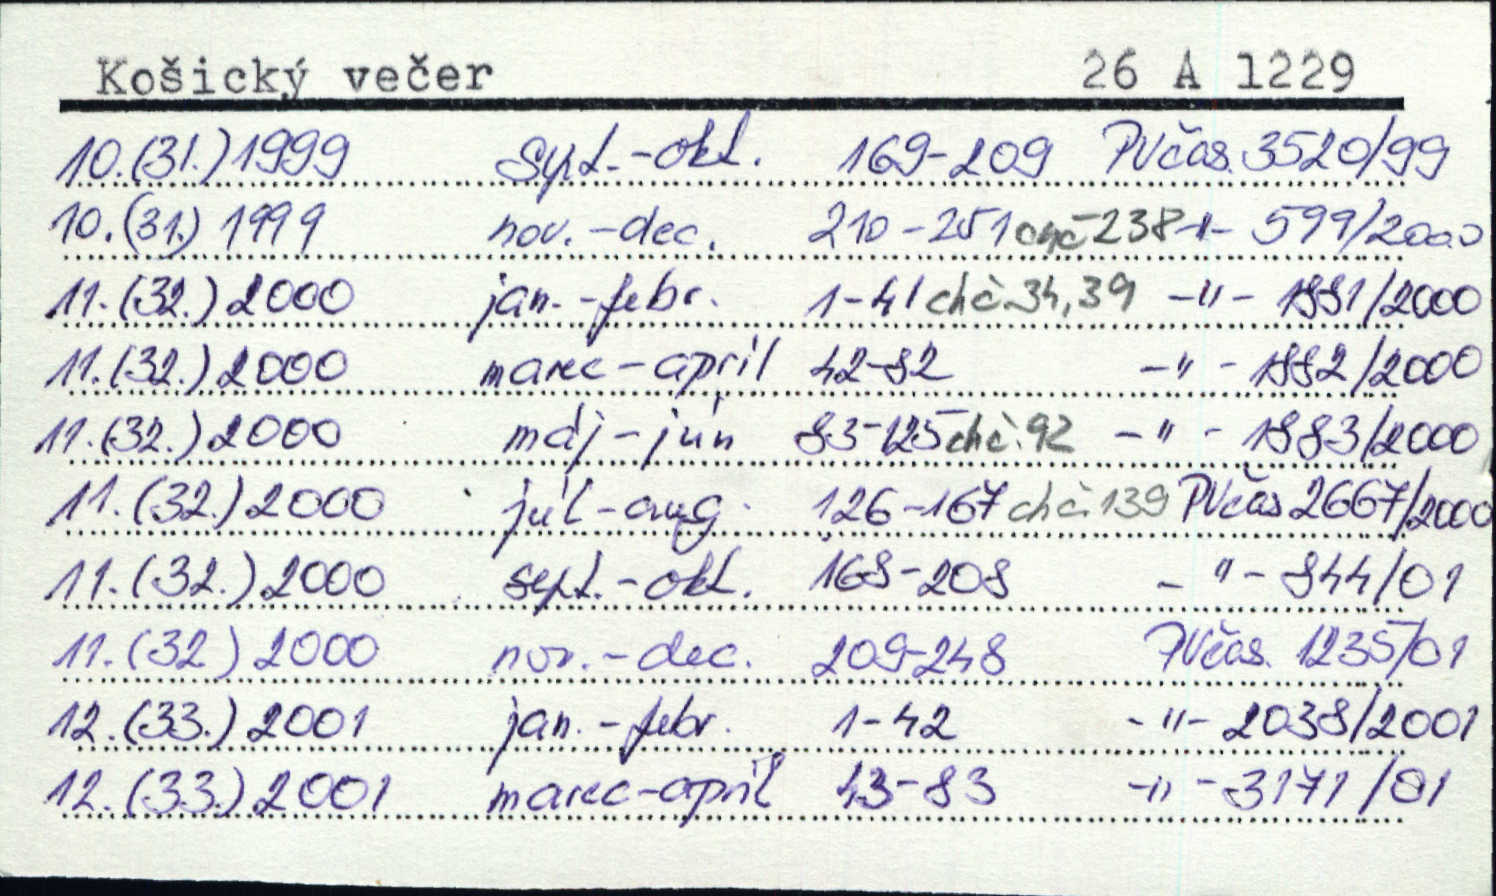 Košický večer 26 A 1229
10.(31.) 1999 sept.-okt. 169-209 PVčas. 3520/99
10.(31.) 1999 nov.-dec. 210-251 chč 238 -"- 599/2000
11.(32.) 2000 jan.-febr. 1-41 chč. 34, 39 -"- 1881/2000
11.(32.) 2000 marec-apríl 42-82 -"- 1882/2000
11.(32.) 2000 máj-jún 83-125 chč. 92 -"- 1883/2000
11.(32.) 2000 júl-aug. 126-167 chč. 139 PVčas 2667/2000
11.(32.) 2000 sept.-okt. 168-208 -"- 844/01
11.(32) 2000 nov.-dec. 209-248 PVčas. 1235/01
12.(33.) 2001 jan.-febr. 1-42 -"- 2038/2001
12.(33.) 2001 marec-apríl 43-83 -"- 3171/01